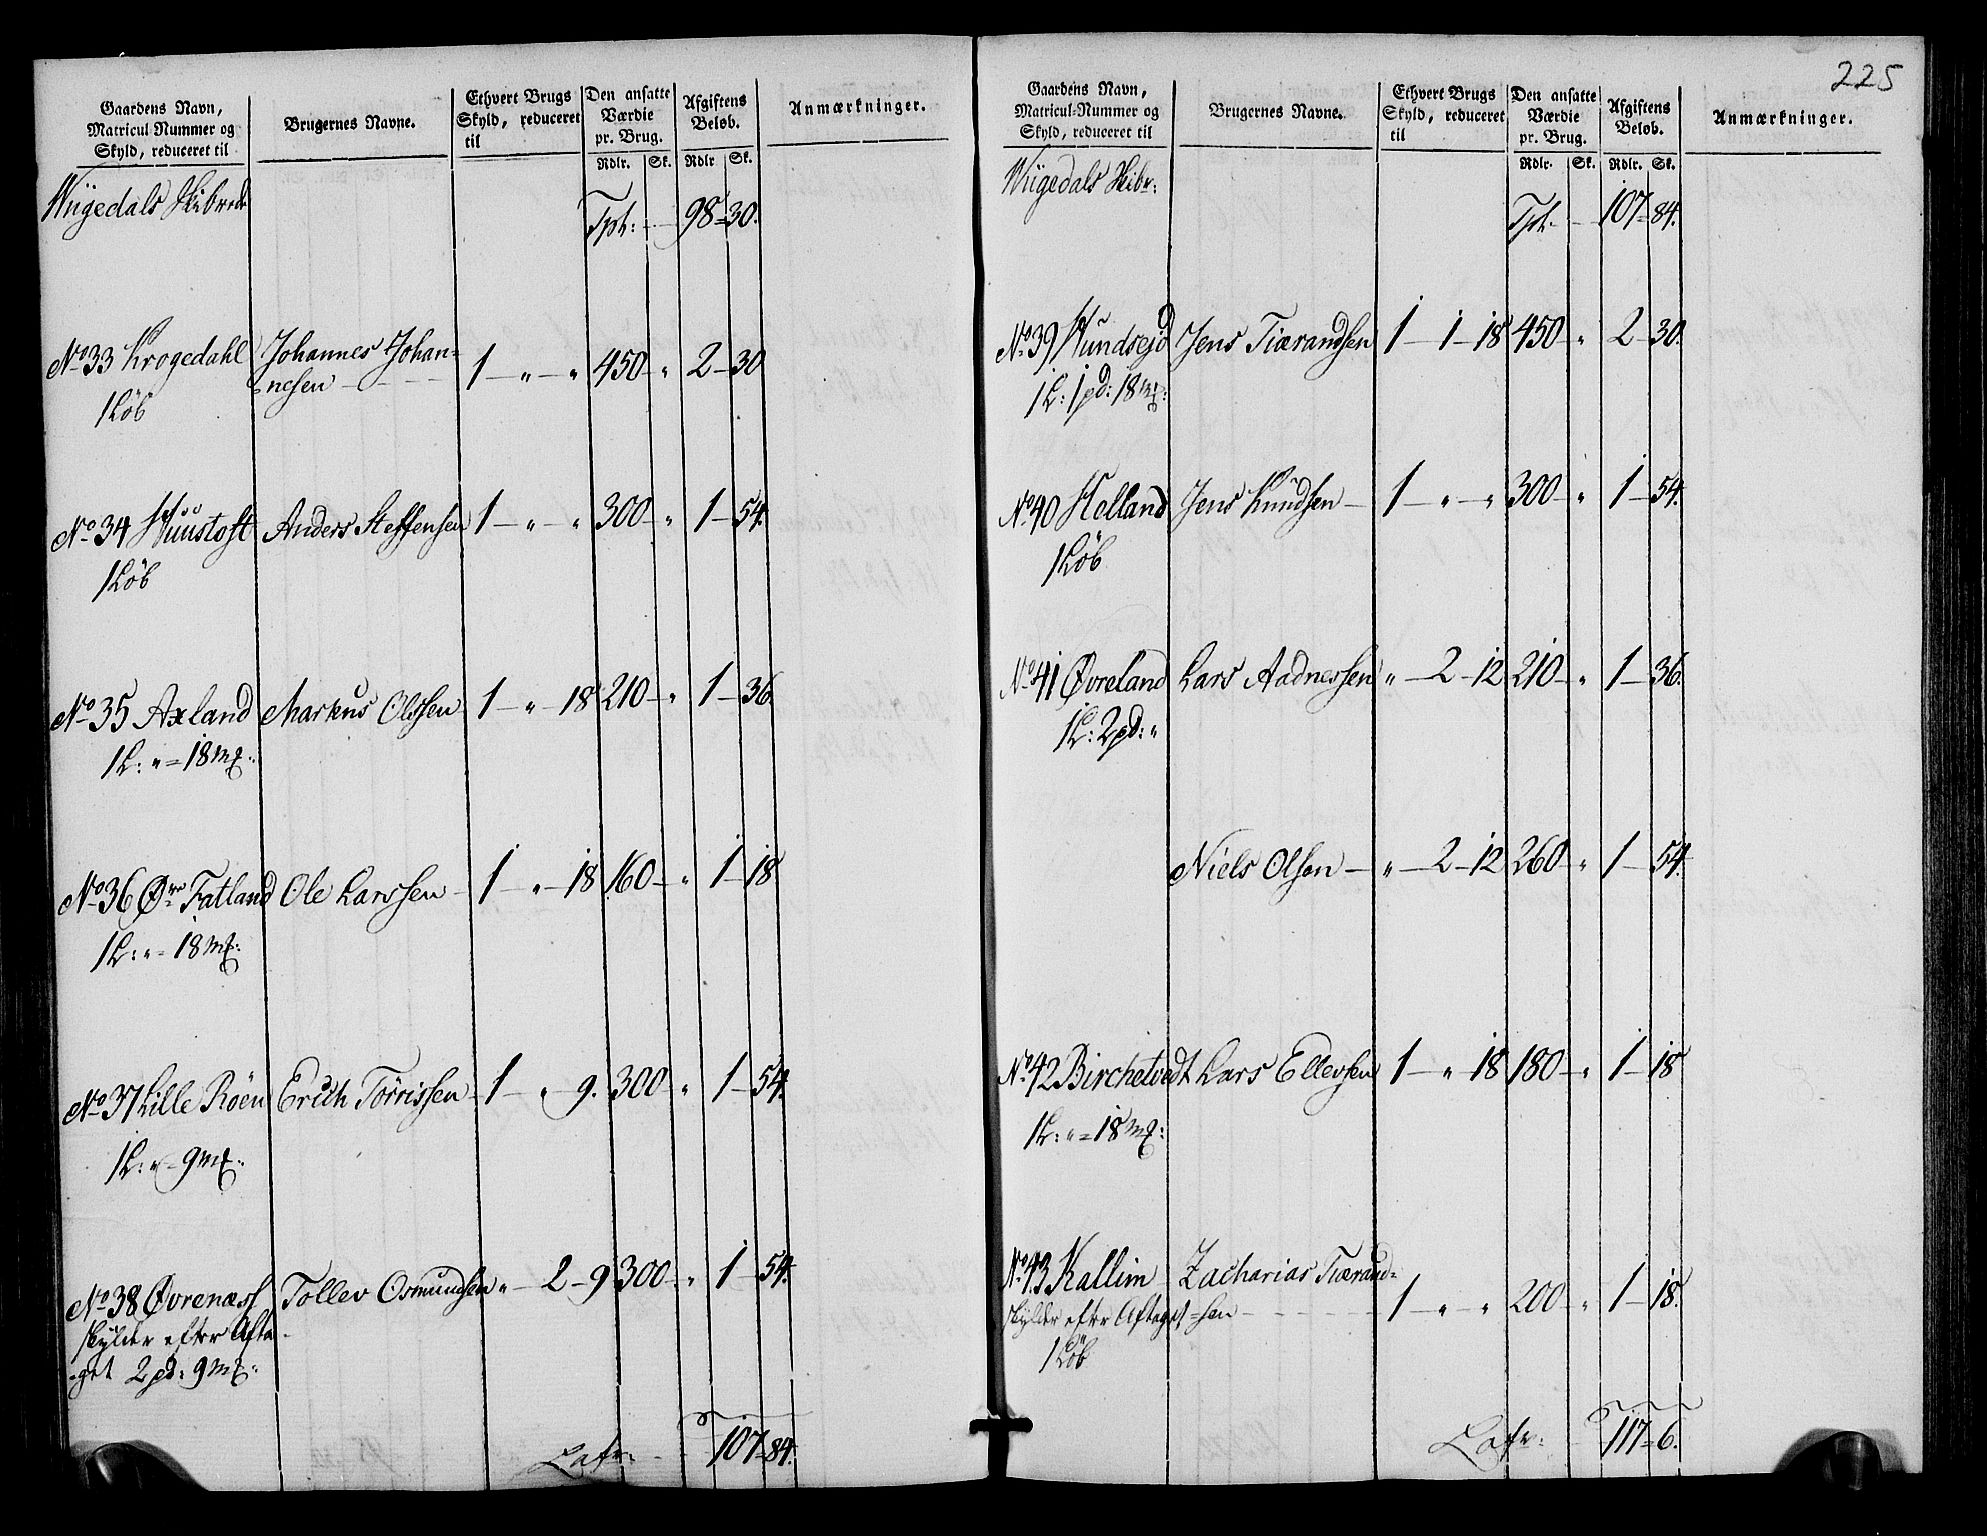 Gaardens Navn,
Matricul Nummer og
Skyld, reduceret til
Brugernes Navne.
Ethvert Brugs
Skyld, reduceret
til
Den ansatte
Værdie
pr. Brug.
Rdlr. Sk.
Afgiftens
Beløb.
Rdlr Sk.
Anmærkninger.
Wiigedals Skibrede
Tpt: - 98 = 30.
No 33 Krogedahl Johannes Johan= 1 — " — " 450 — " 2 — 30
1 Löb nesen
No 34 Huustoft Anders Steffensen 1 — " — " 300 — " 1 — 54.
1 Löb
No 35 Axland Markus Olssen 1 — " — 18 210 — " 1 — 36.
1 L: " = 18 mk:
No 36 Øvre Fatland Ole Larssen — 1 — " — 18 160 — " 1 — 18
1 L: " = 18 mk:
No 37 Lille Röen Erich Törrissen 1 — " 9. 300 — " 1 — 54.
1 L: " = 9 mk:
No 38 Øvrenæss Tollev Osmundsen " — 2 — 9 300 — " 1 — 54.
skylder efter Afta-
-get 2 pd: 9 mk:
Lafr: - 107 = 84.
225
Gaardens Navn,
Matricul-Nummer og
Skyld, reduceret til
Brugernes Navne.
Ethvert Brugs
Skyld, reduceret
til
Den ansatte
Værdie
pr. Brug.
Rdlr. Sk.
Afgiftens
Beløb.
Rdlr. Sk.
Anmærkninger.
Wiigedals Skibr:
Tpt: - 107 = 84.
No 39 Hundsejd Jens Tiærandsen 1 — 1 — 18 450 — " 2 — 30.
1 L: 1 pd: 18 mk:
No 40 Helland Jens Knudsen — 1 — " — " 300 — " 1 — 54.
1 Löb
No 41 Øvreland Lars Aadnessen " — 2 — 12 210 — " 1 — 36.
1 L: 2 pd: "
Niels Olsen — " — 2 — 12 260 — " 1 — 54.
No 42 Birchetvedt Lars Ellevsen 1 — " 18 180 — " 1 — 18
1 L: " = 18 mk:
No 43 Kallim Zacharias Tiærand=
skylder efter Aftaget =sen 1 — " — " 200 — " 1 — 18.
1 Löb
Lafr: - 117 = 6.